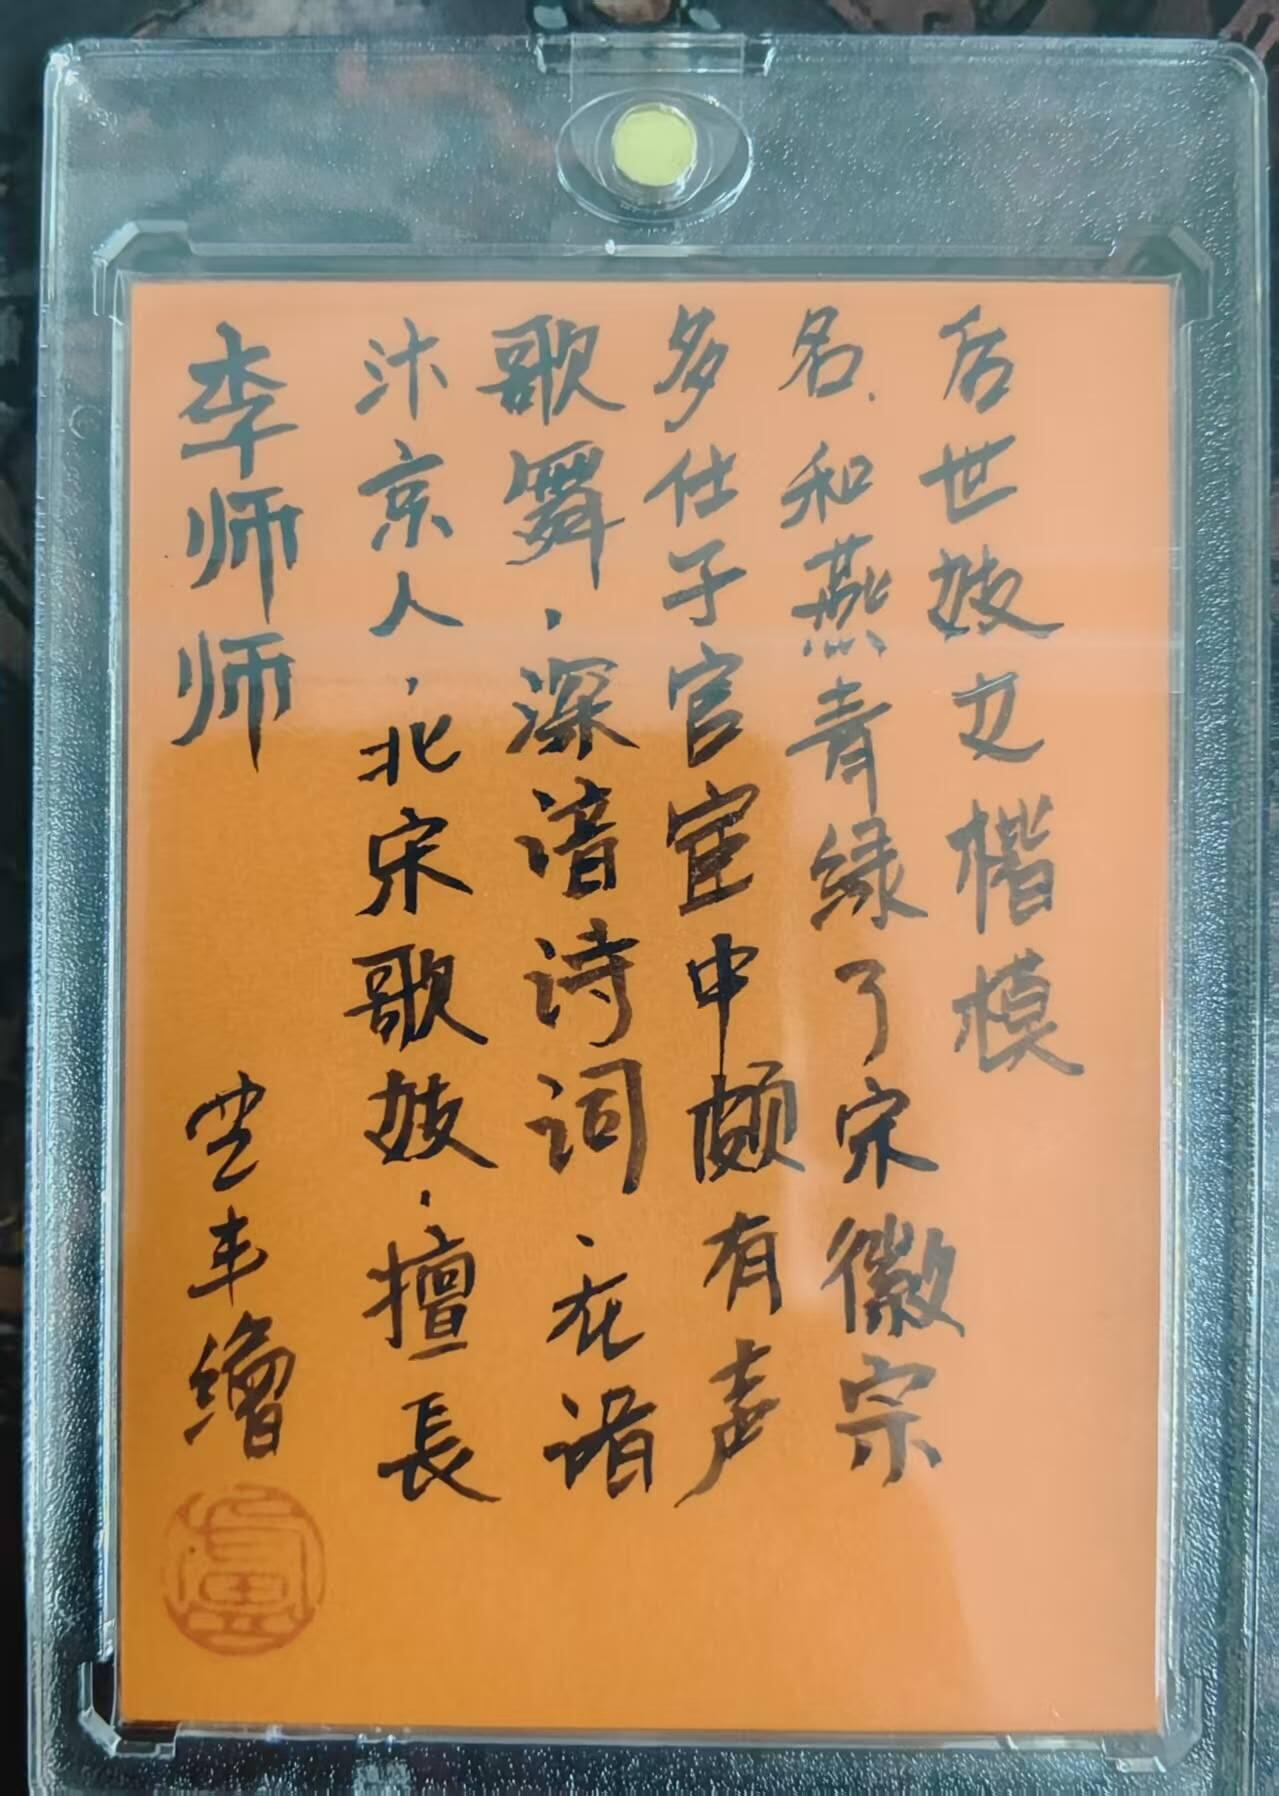 李师师
繪
盧
汴京人，北宋歌妓，擅長
歌舞，深谙诗词，在诸
多仕子官宦中颇有声
名，和燕青绿了宋徽宗
后世妓之楷模